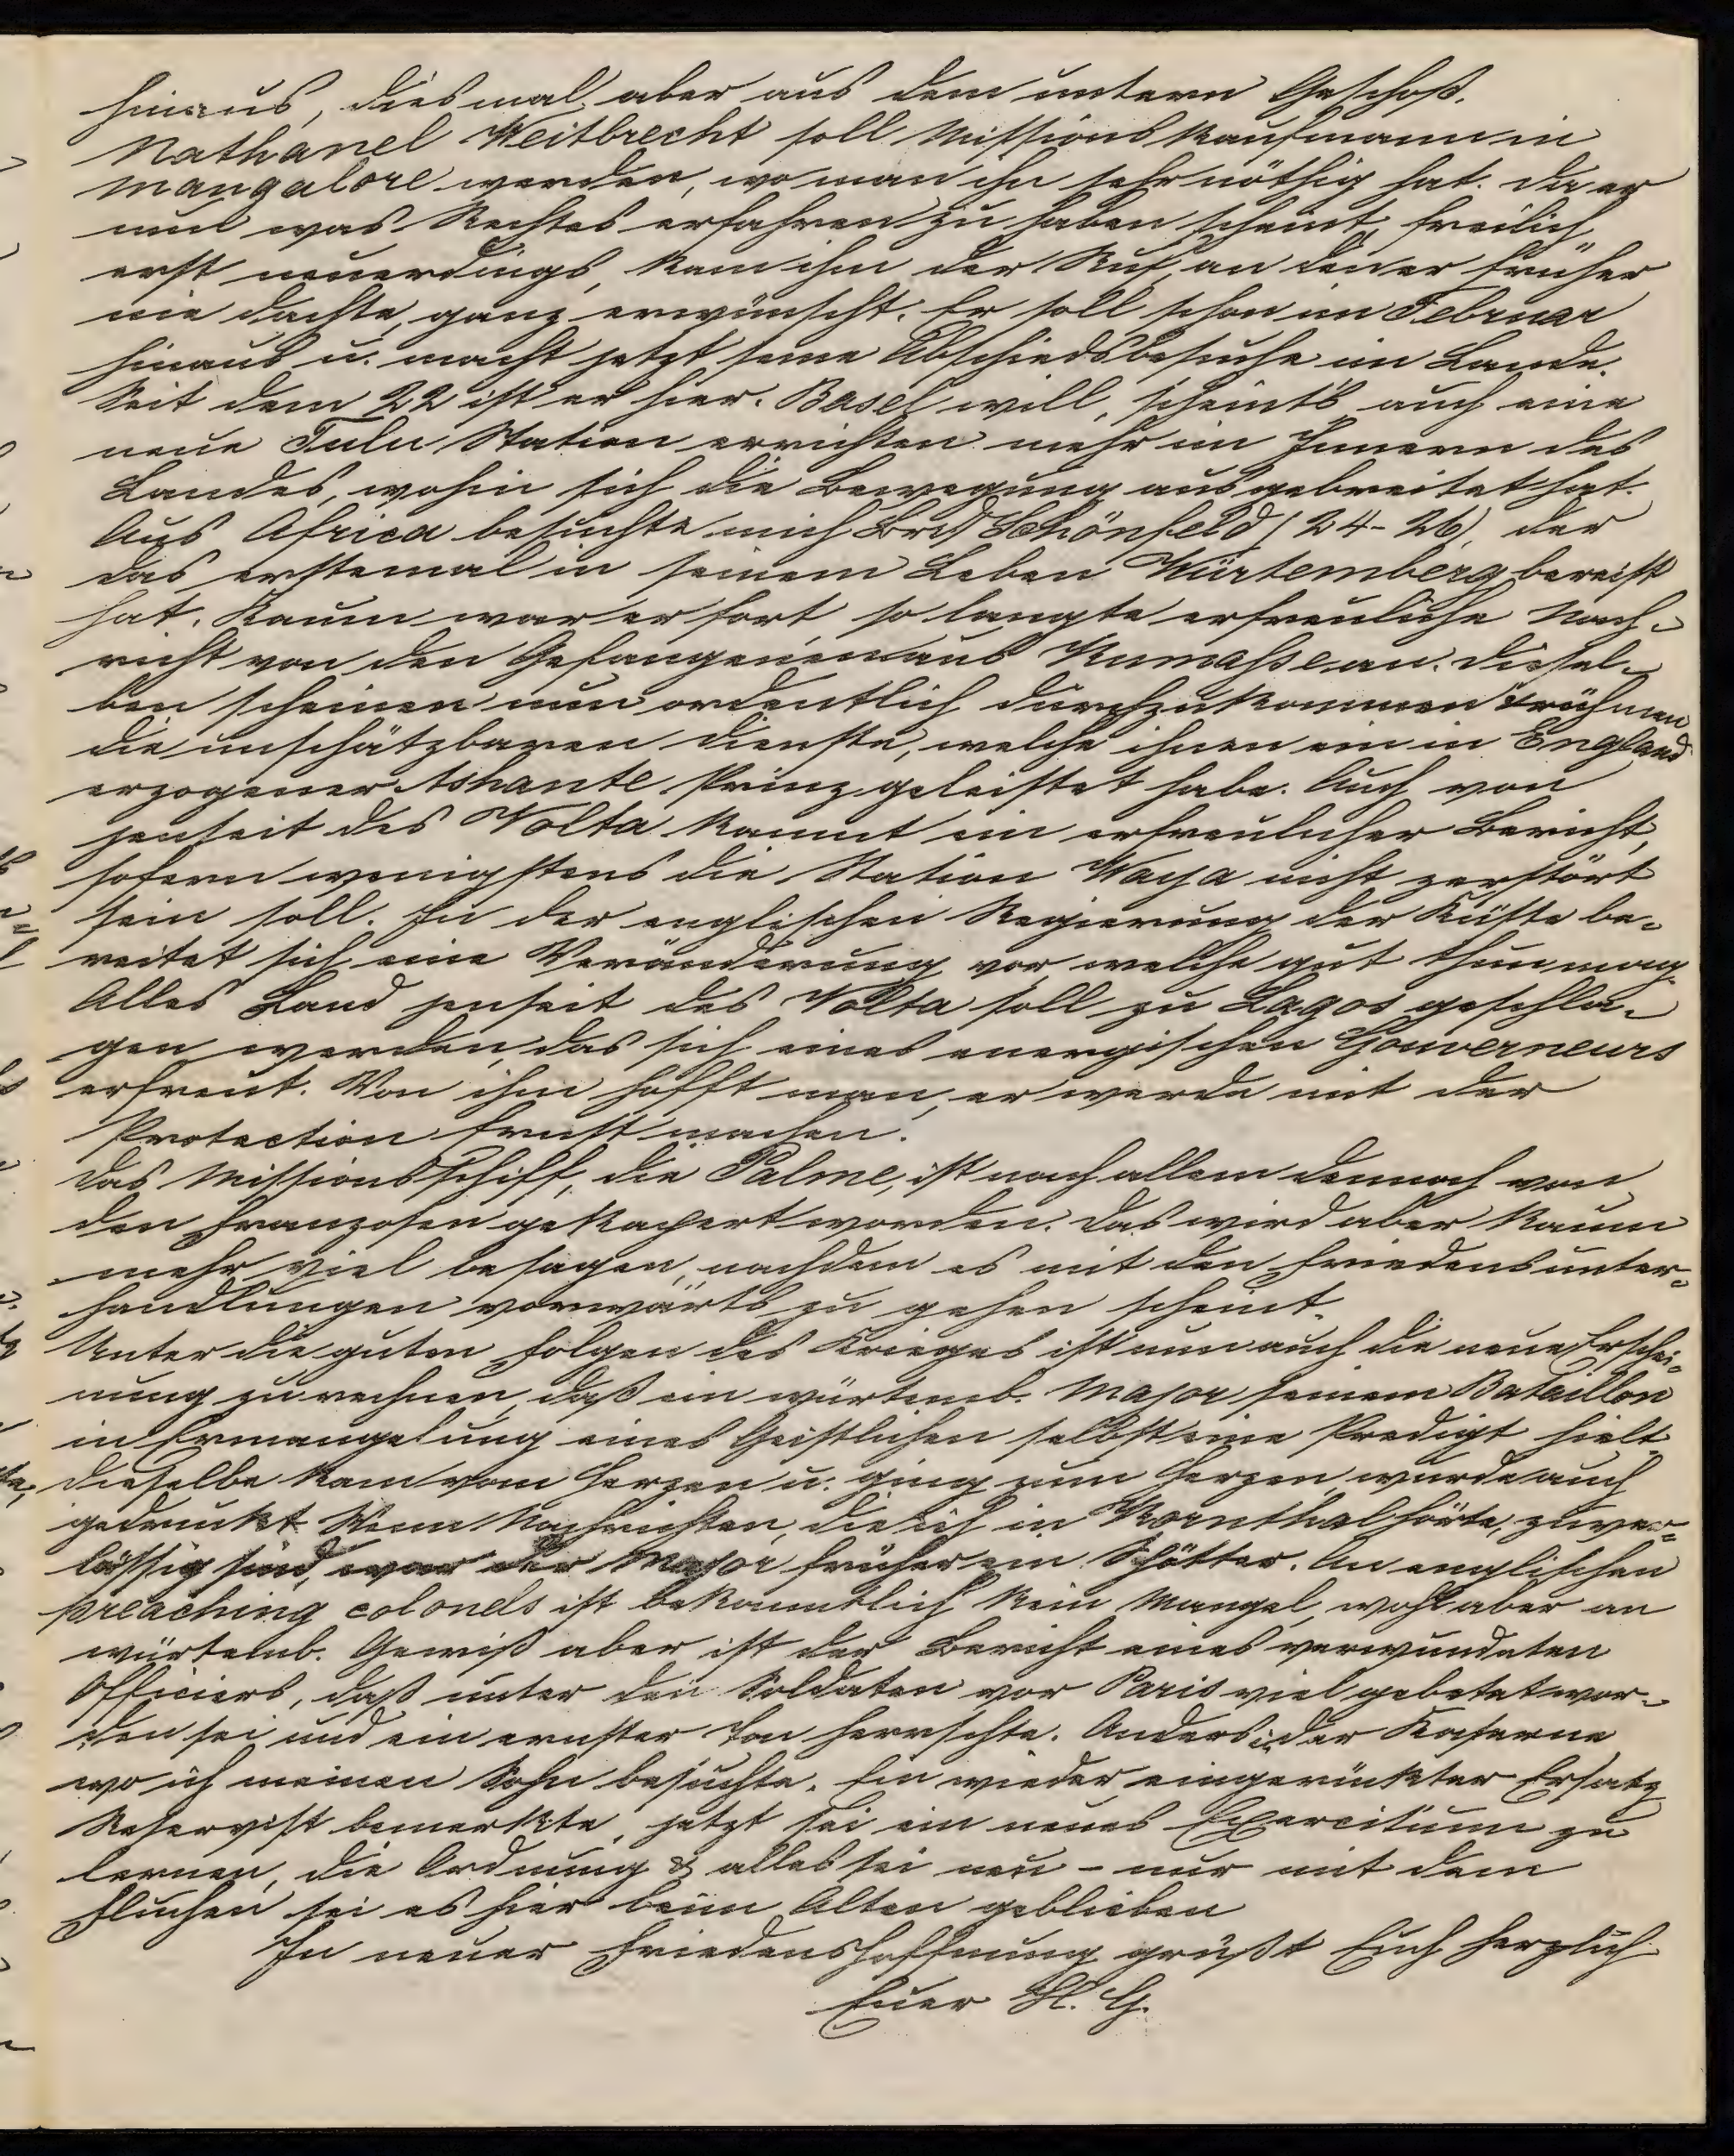 hinaus, diesmal aber aus dem untern Geschoß.
Nathanel Weitbrecht soll Missionskaufmann in
Mangalore werden, wo man ihn sehr nöthig hat. Da er
nun was Rechtes erfahren zu haben scheint, freilich
erst neuerdings, kam ihm der Ruf, an den er früher
nie dachte, ganz erwünscht. Er soll schon im Februar
hinaus u. macht jetzt seine Abschiedsbesuche im Lande.
Seit dem 22 ist er hier. Basel will, scheint's auch eine
neue Tulu Station errichten mehr im Innern des
Landes, wohin sich die Bewegung ausgebreitet hat.
Aus Africa besuchte mich Brd Schönfeld (24-26), der
das erstemal in seinem Leben Würtemberg bereist
hat. Kaum war er fort so langte erfreuliche Nach-
richt von den Gefangenen aus Kumasse an. Diesel-
ben scheinen nun ordentlich durchzukommen u rühmen
die unschätzbaren Dienste, welche ihnen ein in England
erzogener Ashante Prinz geleistet habe. Auch von
jenseit des Volta kommt ein erfreulicher Bericht,
sofern wenigstens die Station Waya nicht zerstört
sein soll. In der englischen Regierung der Küste be-
reitet sich eine Veränderung vor welche gut thun mag.
Alles Land jenseit des Volta soll zu Lagos geschla-
gen werden, das sich eines energischen Gouverneurs
erfreut. Von ihm hofft man, er werde mit der
Protection Ernst machen.
Das Missionsschiff, die Palme, ist nach allem dennoch von
den Franzosen gekapert worden. Das wird aber kaum
mehr viel besagen, nachdem es mit den Friedensunter-
handlungen vorwärts zu gehen scheint.
Unter die guten Folgen des Krieges ist nun auch die neue Erschei-
nung zu rechnen, daß ein würtemb. Major seinem Bataillon
in Ermangelung eines Geistlichen selbst eine Predigt hielt.
Dieselbe kam vom Herzen u. ging zum Herzen, wurde auch
gedruckt. Wenn Nachrichten, die ich in Kornthal hörte, zuver-
lässig sind, war der Major früher ein Spötter. An englischen
preaching colonels ist bekanntlich kein Mangel, wohl aber an
würtemb. Gewiß aber ist der Bericht eines verwundeten
Officiers, daß unter den Soldaten vor Paris viel gebetet wor-
den sei und ein ernster Ton herrschte. Anders in der Kaserne
wo ich meinen Sohn besuchte. Ein wieder eingerückter Ersatz
Reservist bemerkte, jetzt sei ein neues Exercitium zu
lernen, die Ordnung & alles sei neu - nur mit dem
Fluchen sei es hier beim Alten geblieben
In neuer Friedenshoffnung grüßt Euch herzlich
Euer H. G.